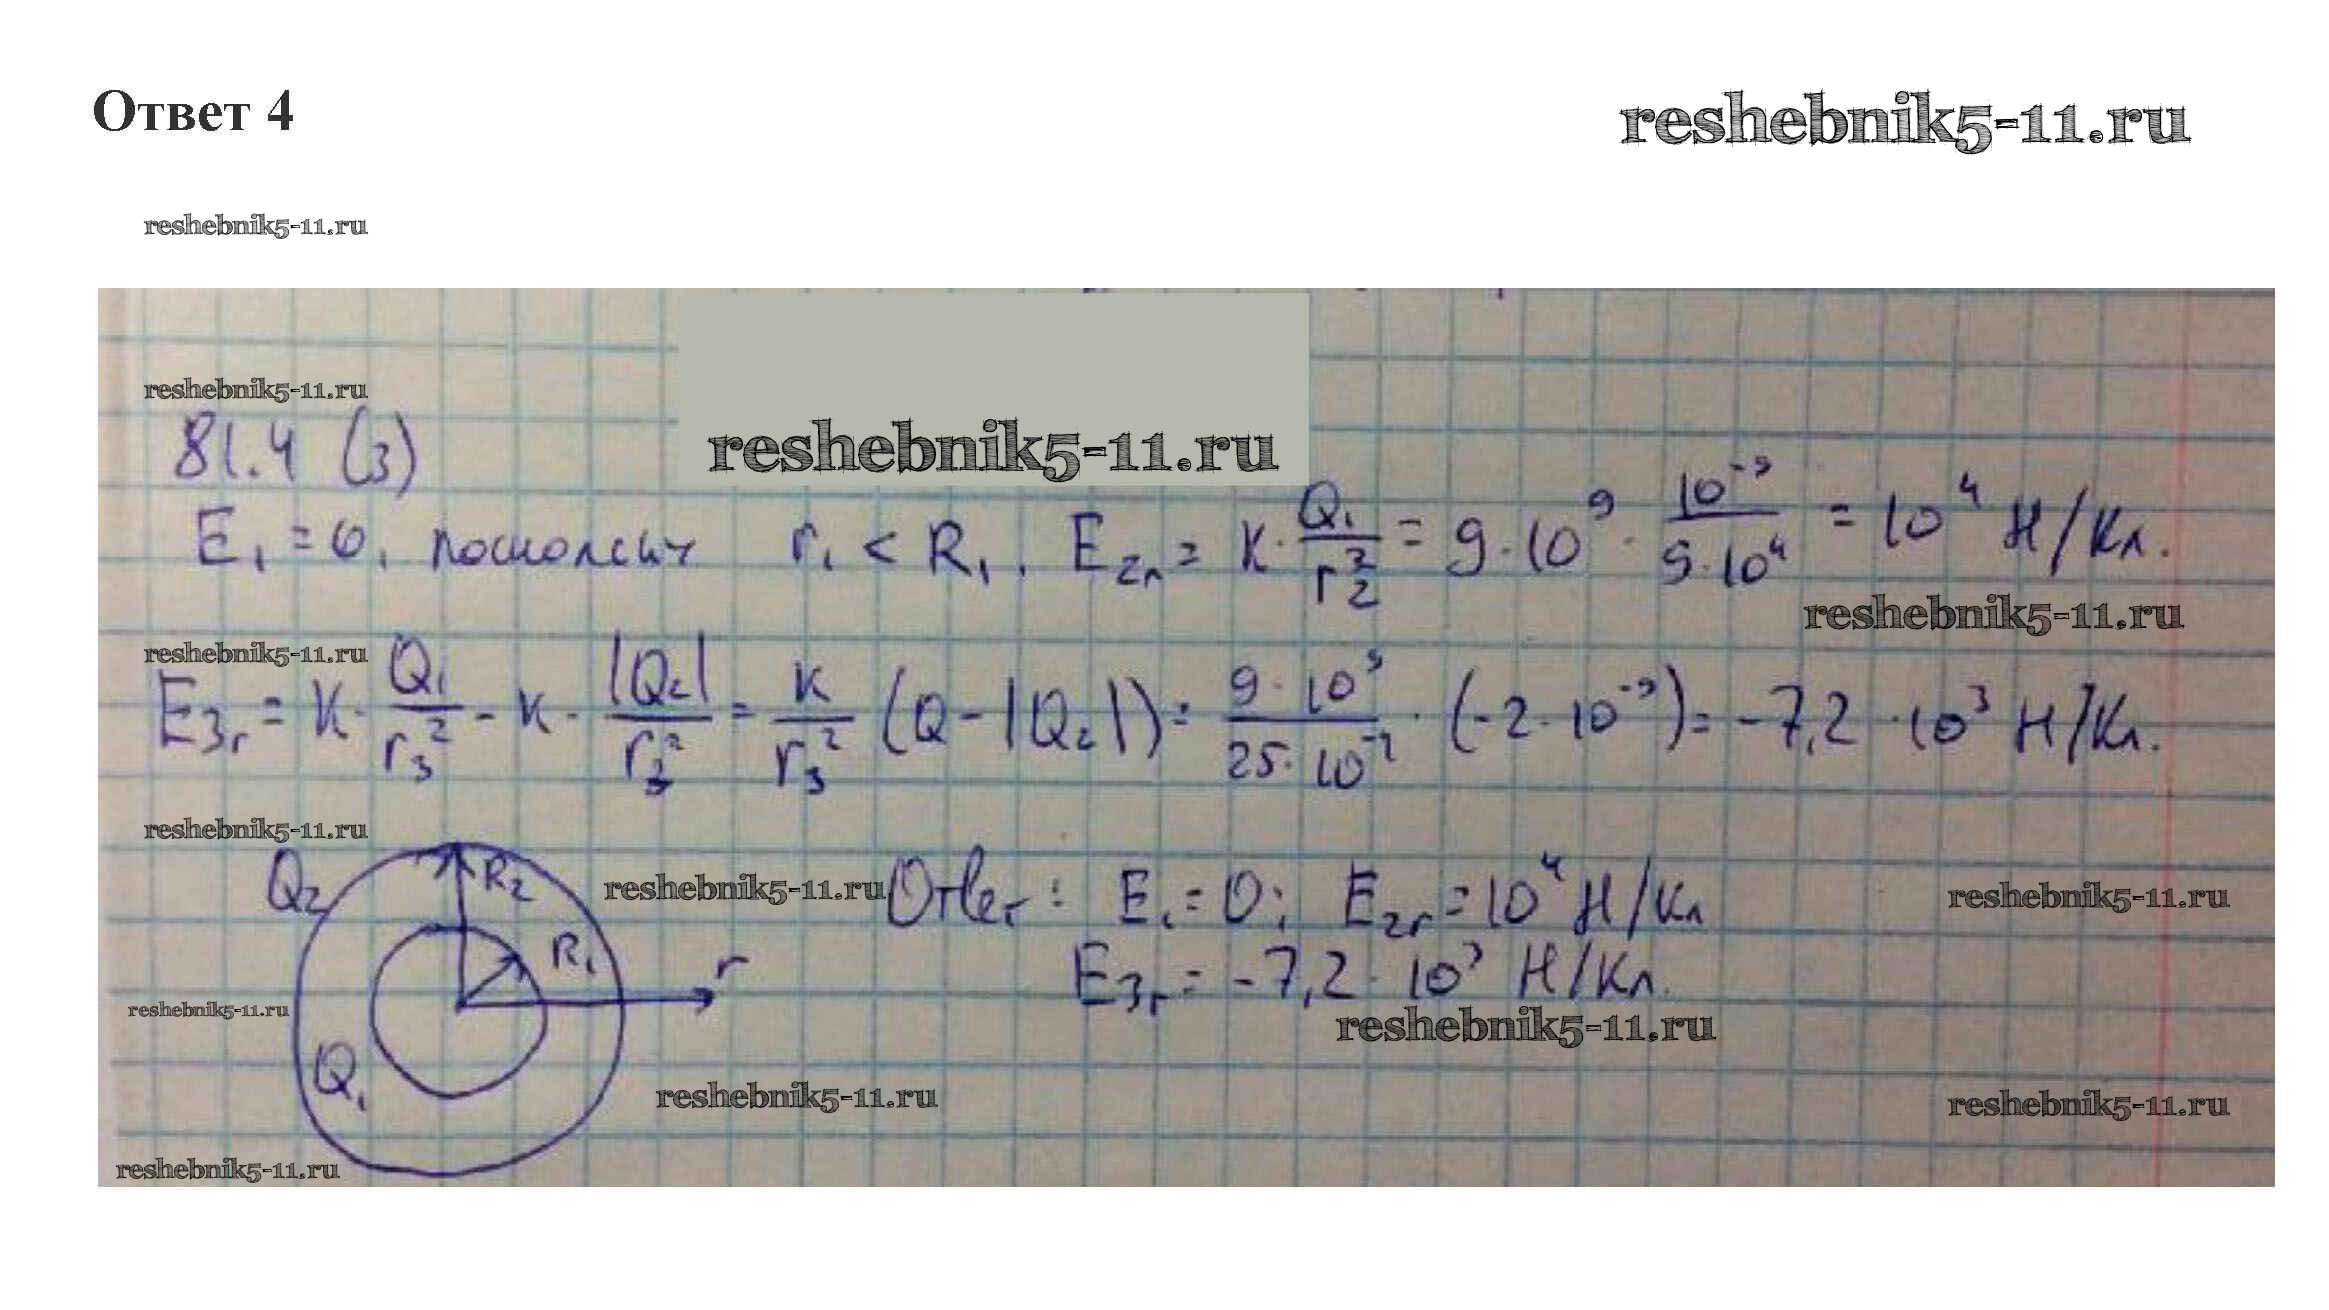 Ответ 4
reshebnik5-11.ru
reshebnik5-11.ru
reshebnik5-11.ru
reshebnik5-11.ru
81.4 (3)
E₁ = 0, r₁ < R₁. E₂ᵣ = K · Q₁/r₂² = 9·10⁹ · 10⁻⁹/9·10⁴ = 10⁴ Н/Кл.
reshebnik5-11.ru
reshebnik5-11.ru
E₃ᵣ = K · Q₁/r₃² - K · |Q₂|/r₃² = K/r₃² (Q - |Q₂|) = 9·10⁹/25·10⁻² · (-2·10⁻⁹) = -7,2 · 10³ Н/Кл.
reshebnik5-11.ru
Q₂ R₂
reshebnik5-11.ru
Ответ: E₁ = 0; E₂ᵣ = 10⁴ Н/Кл
reshebnik5-11.ru
R₁ r
E₃ᵣ = -7,2 · 10³ Н/Кл.
reshebnik5-11.ru
reshebnik5-11.ru
Q₁
reshebnik5-11.ru
reshebnik5-11.ru
reshebnik5-11.ru